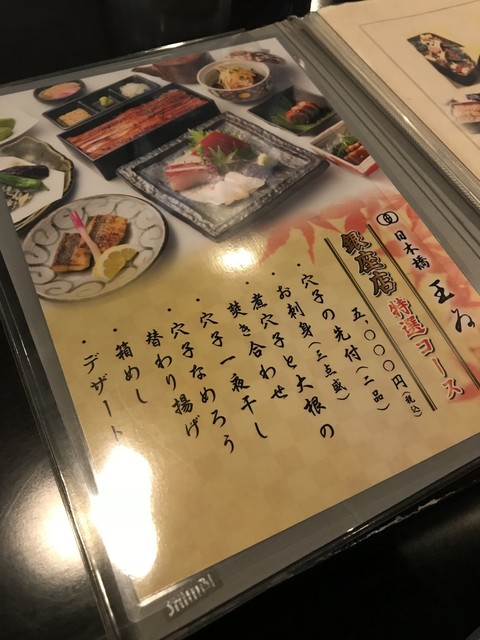 日本橋 玉ゐ
銀座店 特選コース
五、〇〇〇円(税込)
・穴子の先付(二品)
・お刺身(三点盛)
・煮穴子と大根の
焚き合わせ
・穴子一夜干し
・穴子なめろう
替わり揚げ
・箱めし
・デザート